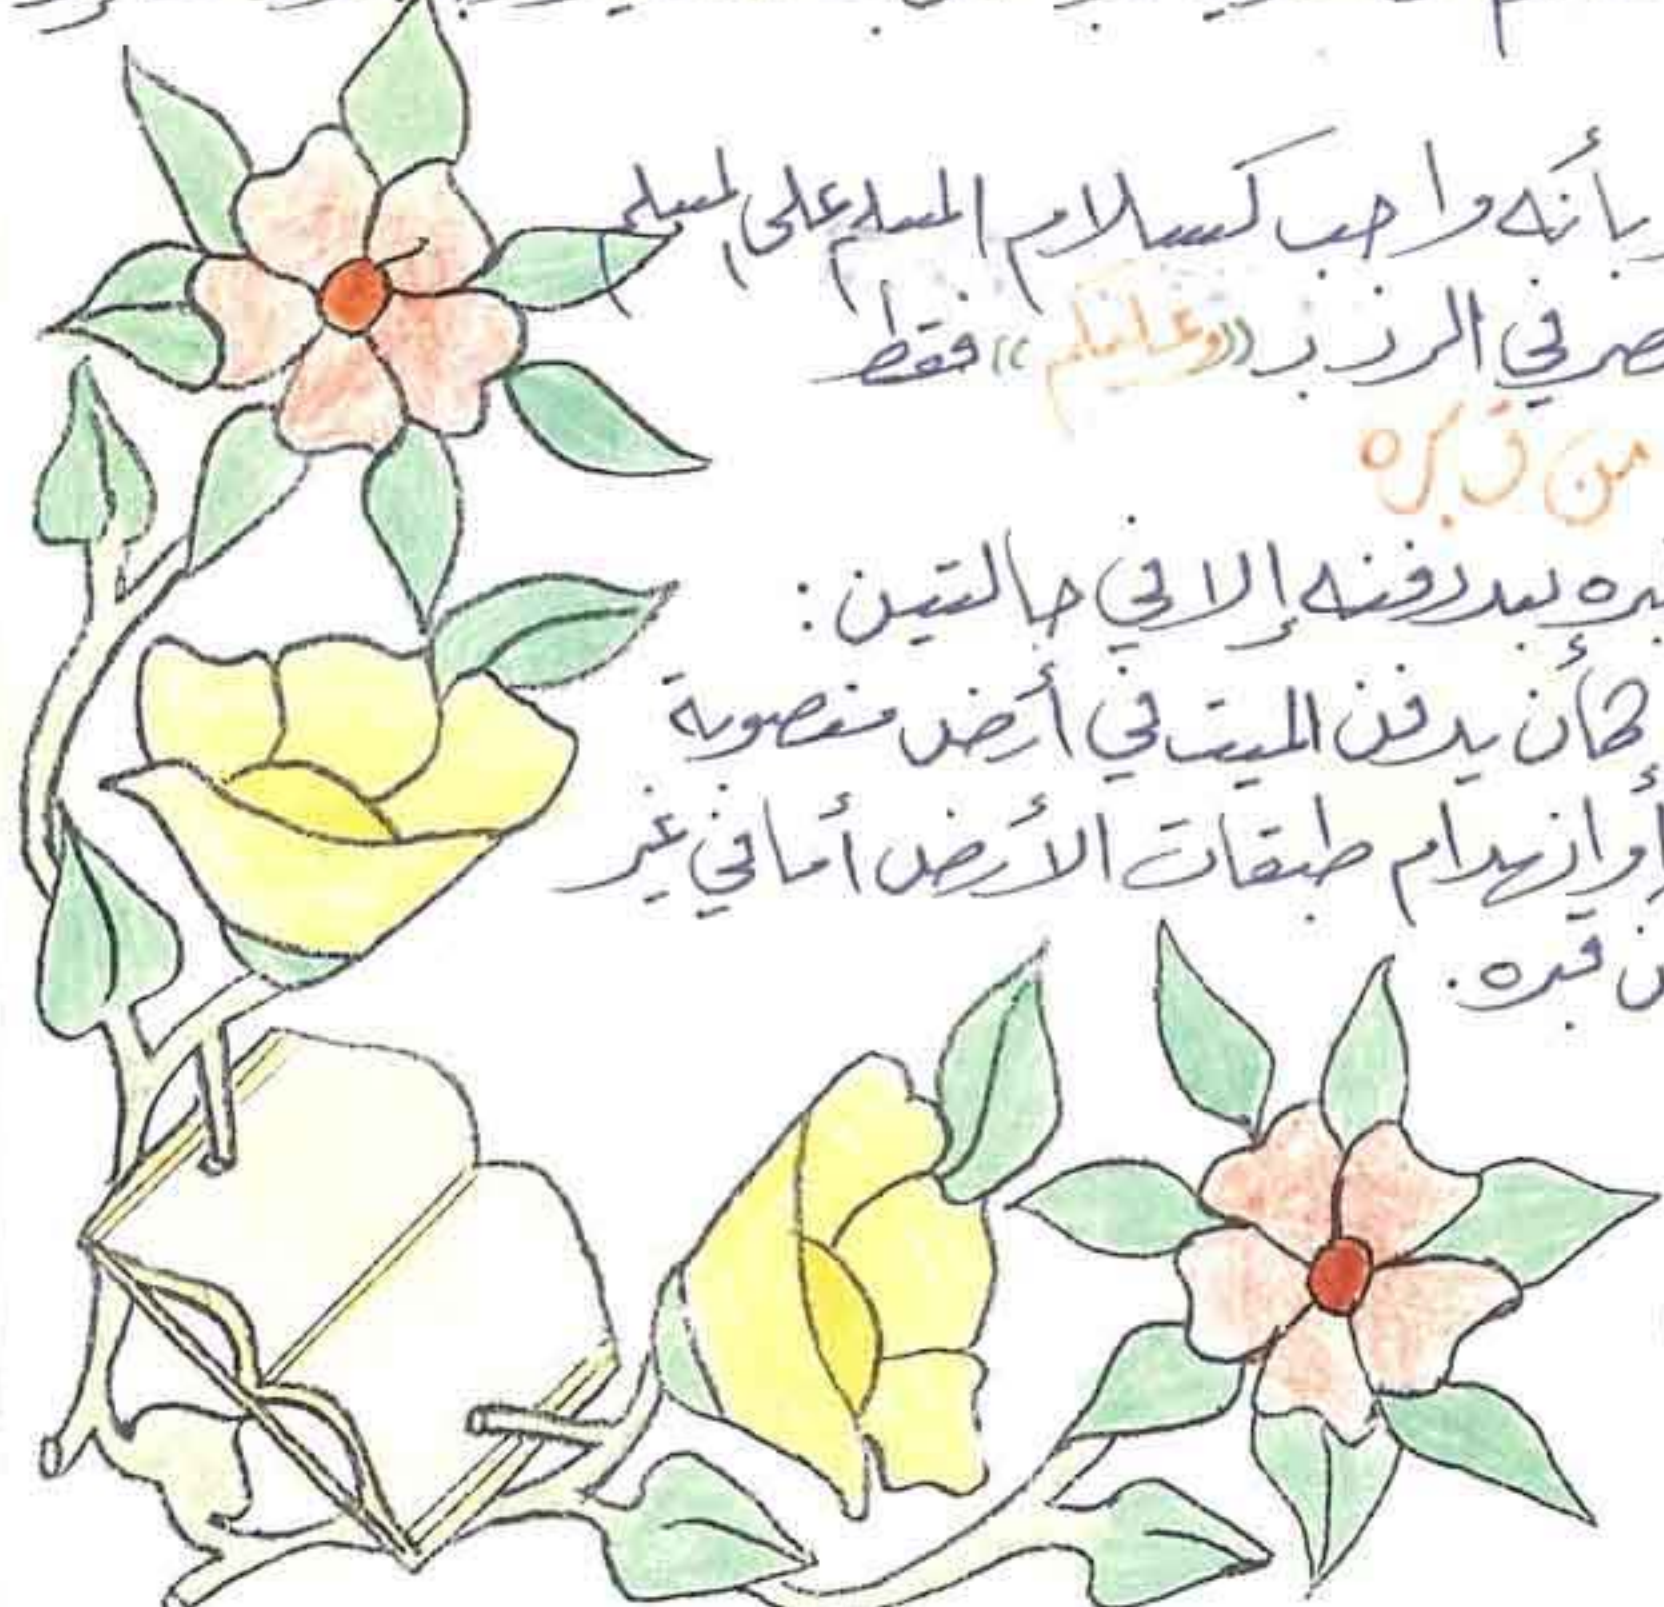 بأنه واجب كسلام المسلم على المسلم
في الرد بـ ((وعليكم)) فقط
من قبره
بعد دفنه إلا في حالتين :
كأن يدفن الميت في أرض مغصوبة
أو انهدام طبقات الأرض أما في غير
قبره .